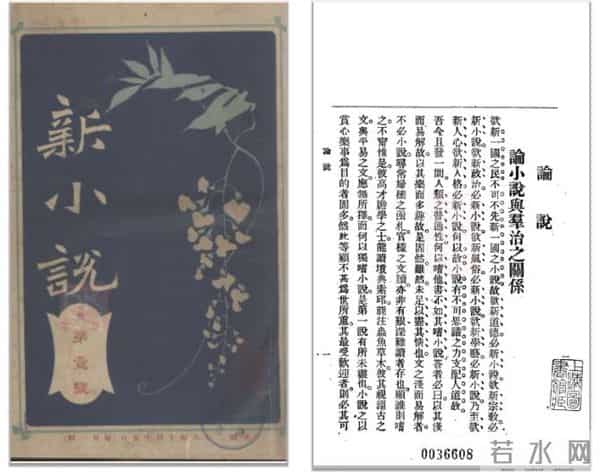 新小說
第壹號
論說
論小說與羣治之關係
欲新一國之民不可不先新一國之小說故欲新道德必新小說欲新宗教必
新小說欲新政治必新小說欲新風俗必新小說欲新學藝必新小說乃至欲
新人心欲新人格必新小說何以故小說有不可思議之力支配人道故
吾今且發一問人類之普通性何以嗜他書不如其嗜小說答者必曰以其淺
而易解故以其樂而多趣故是固然雖然未足以盡其情也文之淺而易解者
不必小說尋常婦孺之函札官樣之文牘亦非有艱深難讀者存也顧誰則嗜
之不甯惟是彼高才贍學之士能讀墳典索邱能注蟲魚草木彼其視淵古之
文與平易之文應無所擇而何以獨嗜小說是第一說有所未盡也小說之以
賞心樂事爲目的者固多然此等顧不甚爲世所重其最受歡迎者則必其可
論說
一
0036608
若水网